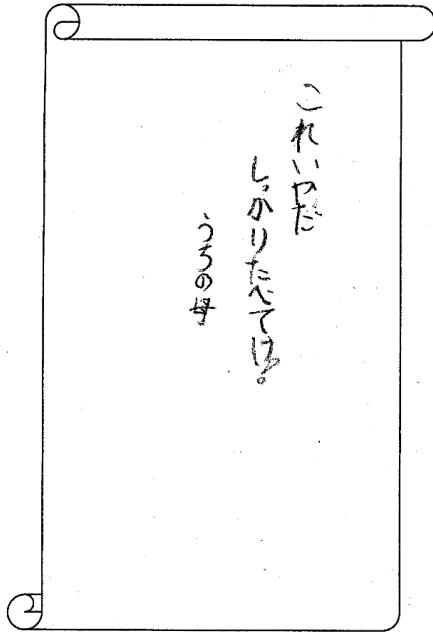 これいやだ
しっかりたべてけ。
うちの母